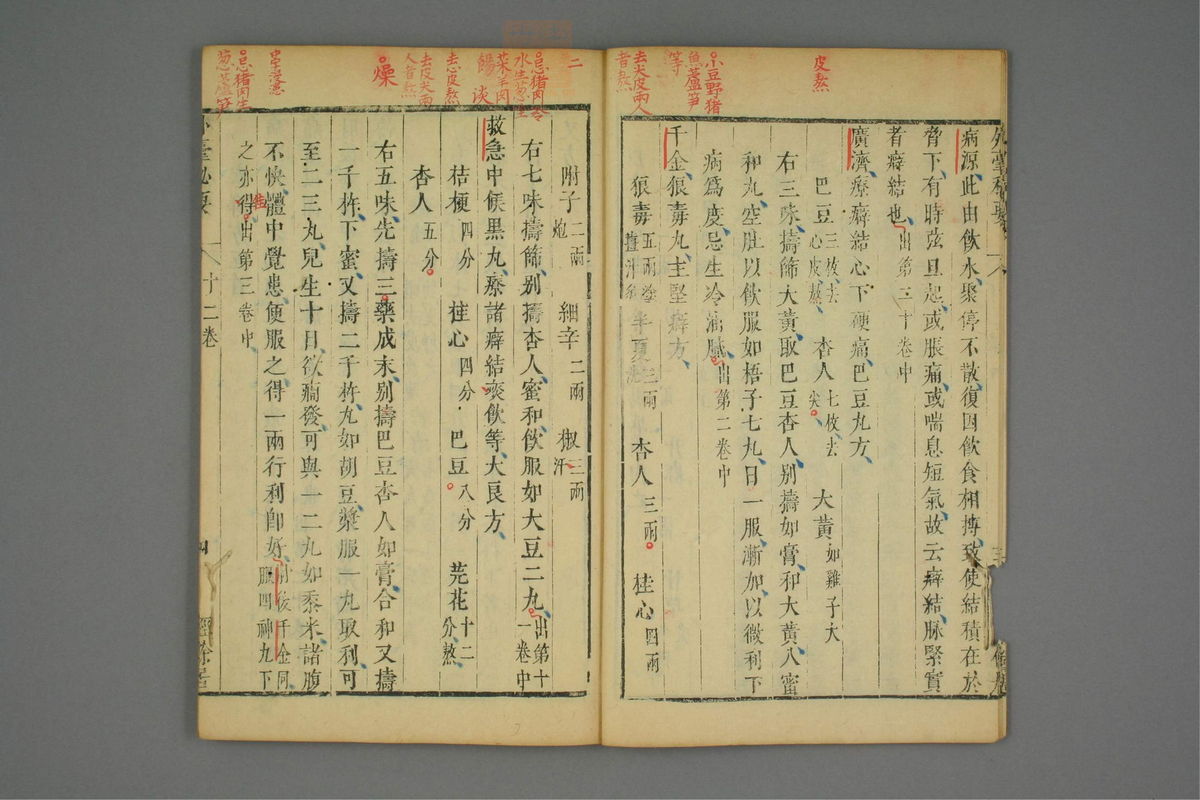 病源此由飲水聚停不散復因飲食相搏致使結積在於
脅下有時弦亘起或脹痛或喘息短氣故云癖結脈緊實
者癖結也出第二十卷中
廣濟療癖結心下硬痛巴豆丸方
巴豆三枚去心皮熬 杏人七枚去尖 大黃如雞子大
右三味擣篩大黃取巴豆杏人别擣如膏和大黃入蜜
和丸空肚以飲服如梧子七丸日一服漸加以微利下
病爲度忌生冷油膩出第二卷中
千金狼毒丸主堅癖方
狼毒五兩 半夏三兩 杏人三兩 桂心四兩
皮熬
小豆野猪
魚蘆笋
等
去尖皮兩人
者熬
附子二兩炮 細辛二兩 椒三兩汗
右七味擣篩别擣杏人蜜和飲服如大豆二丸出第十一卷中
救急中候黒丸療諸癖結痰飲等大良方
桔梗四分 桂心四分 巴豆八分 芫花十二分熬
杏人五分
右五味先擣三藥成末别擣巴豆杏人如膏合和又擣
一千杵下蜜又擣二千杵丸如胡豆漿服一丸取利可
至二三丸兒生十日欲癇發可與一二丸如黍米諸腹
不快體中覺患便服之得一兩行利卽好肘後千金同服四神丸下
之亦得出第三卷中
十二卷
二
忌猪肉冷
水生葱生
菜羊肉
餳
去皮熬
去皮尖兩
人者熬
燥
忌猪肉生
葱蘆笋
經餘居